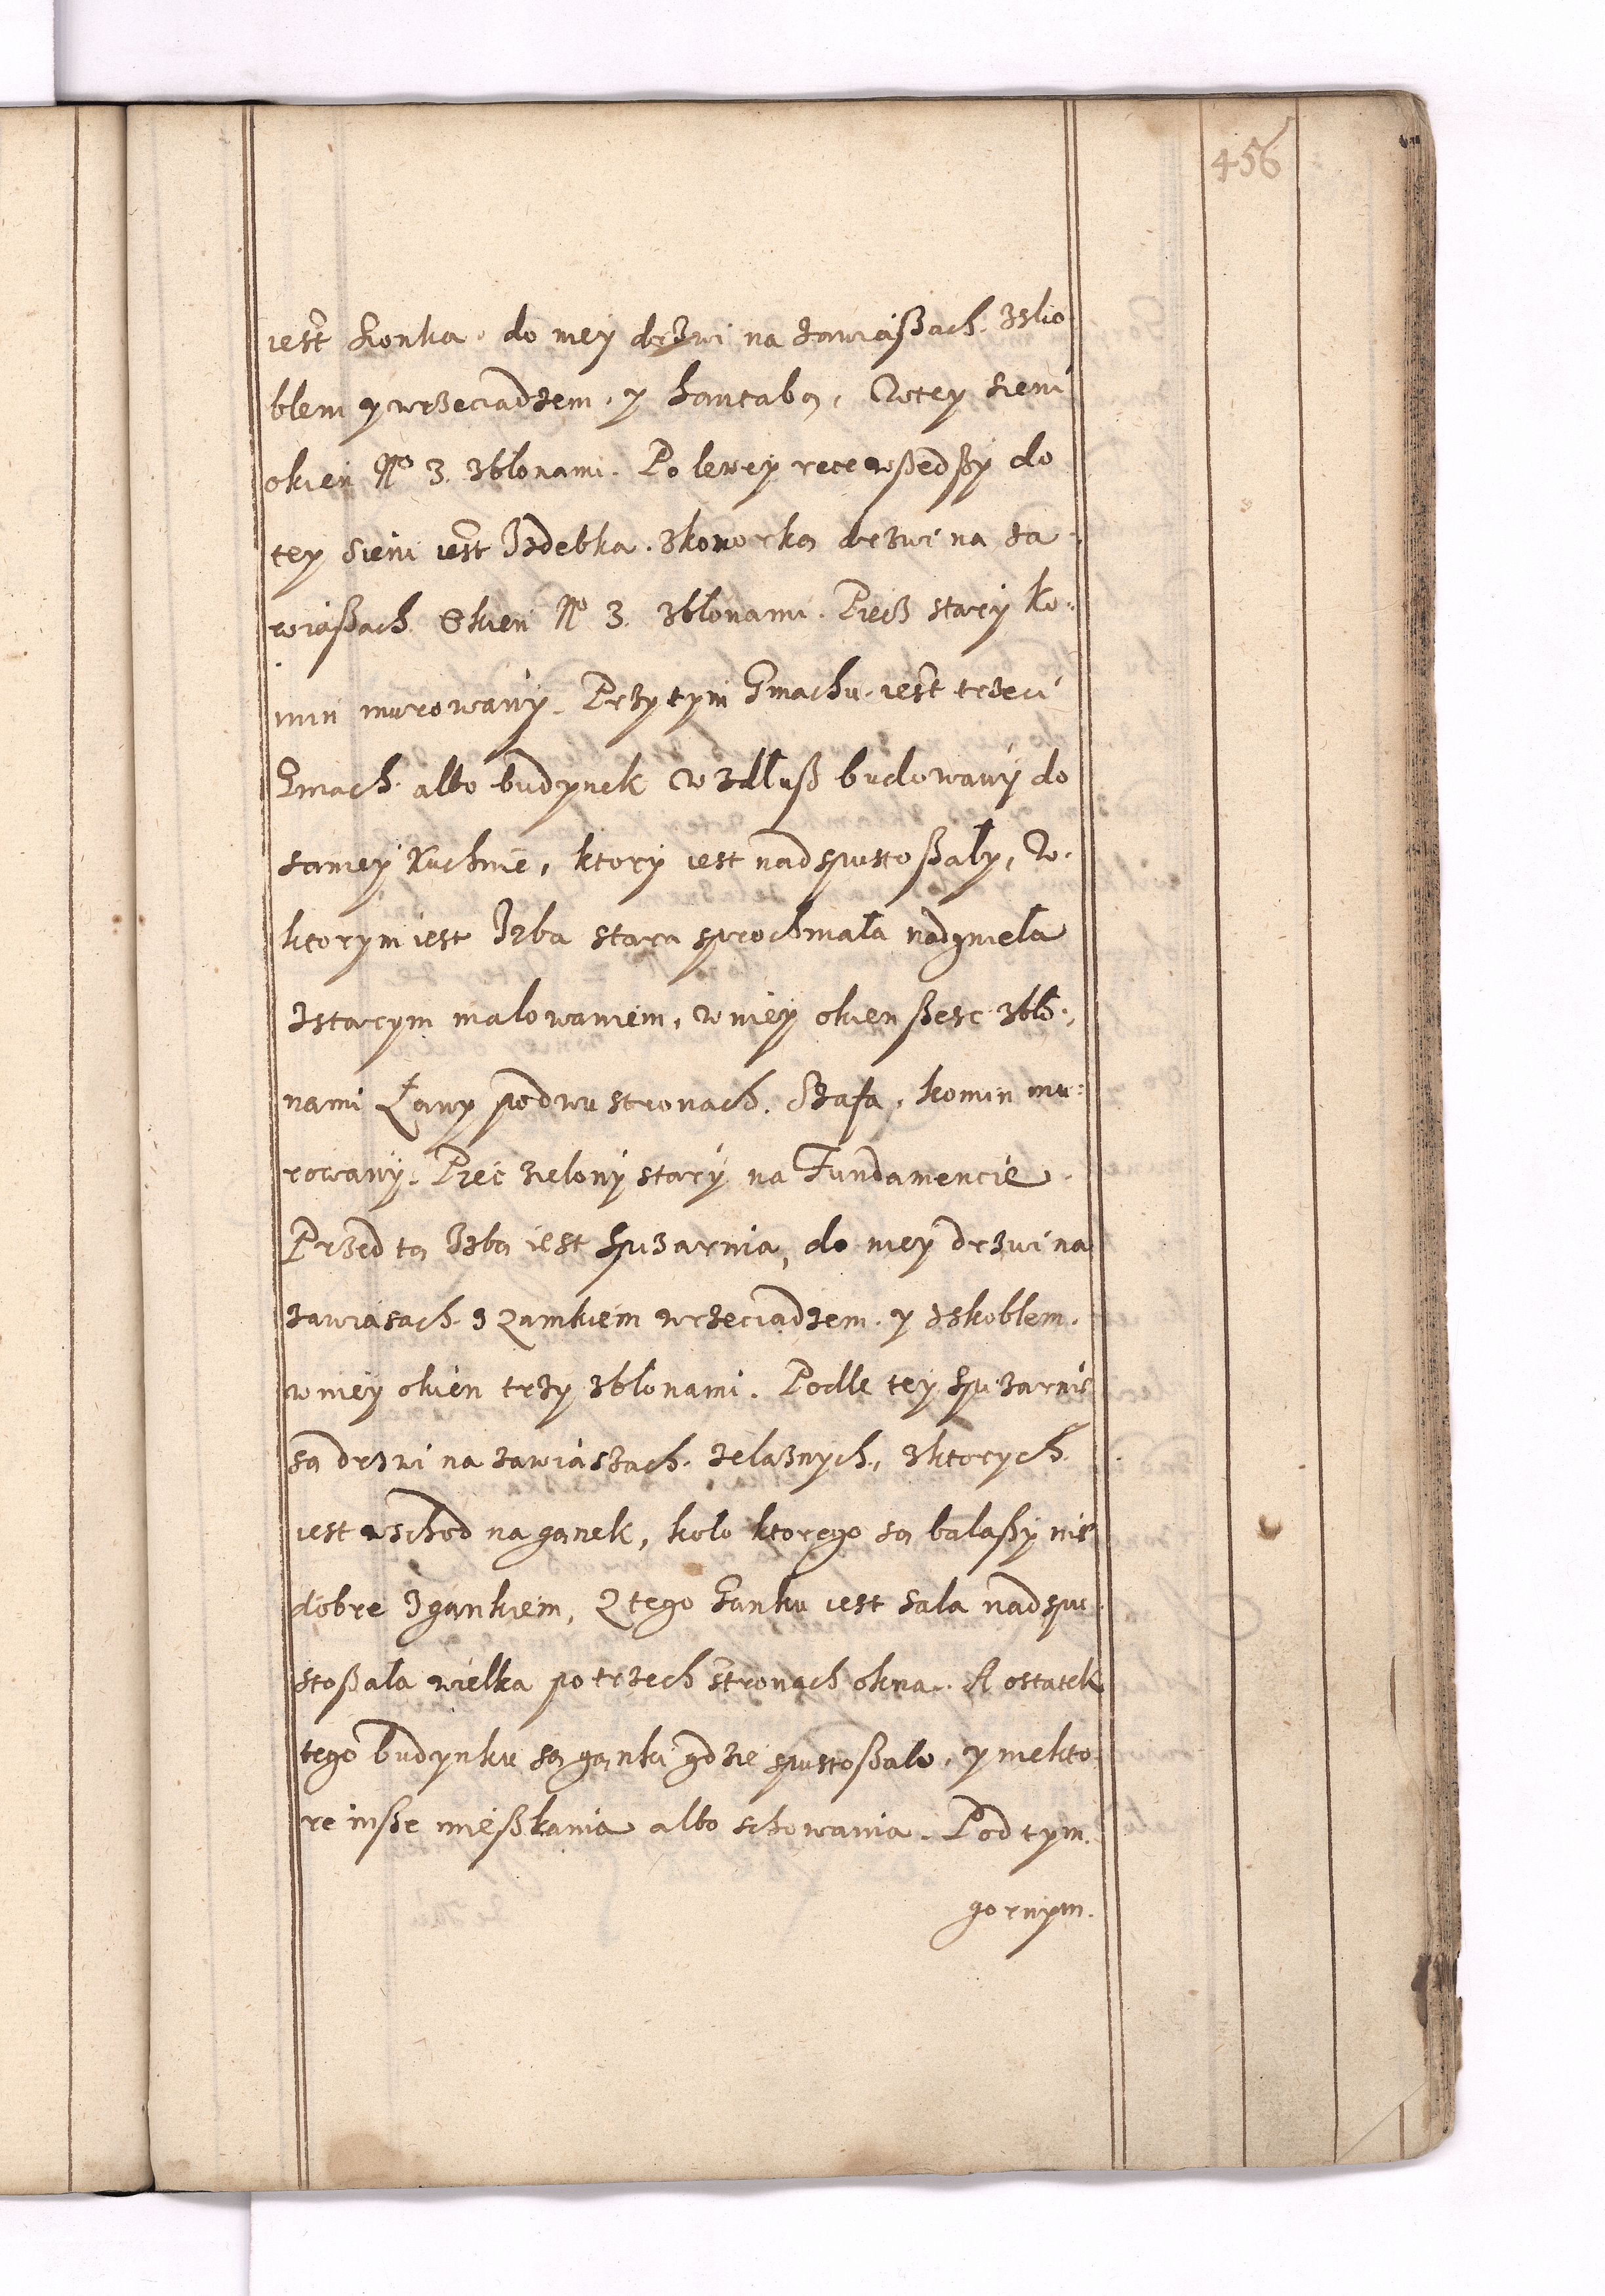 456
iest Konka. do niey drzwi na zawiaßach. zsko
blem y wrzeciadzem. y hantabą, W tey sieni
okien No 3. zblonami. Po lewey rece wßedßy do
tey sieni iest Izdebka. zkomorką drzwi na za-
wiaßach Okien No 3. zblonami. Piecz stary ko-
min murowany. Przy tym Gmachu. iest trzeci
Gmach albo budynek wzdłuß budowany do
samey Kuchnie, ktory iest nadspustoßały, w-
ktorym iest Izba stara sprochniała nadgnieła
zstarym malowaniem, w niey okien ßesc zbło-
nami Ławy podwu stronach. Szafa. komin mu-
rowany. Piec zielony stary na Fundamencie.
Przed tą Izbą iest spizarnia, do niey drzwi na
zawiasach. z Zamkiem wrzeciadzem. y zskoblem.
w niey okien trzy zblonami. Podle tey spizarnie
są drzwi na zawiaszach. zelaznych, zktorych
iest wschod na ganek, koło ktorego są balaßy nie
dobre zgankiem, Z tego Ganku iest Sala nadspu-
stoßała wielka po trzech stronach okna. A ostatek
tego budynku są ganki gdzie spustoßalo. y niekto-
re inße mießkania albo schowania. Pod tym.
gornym.